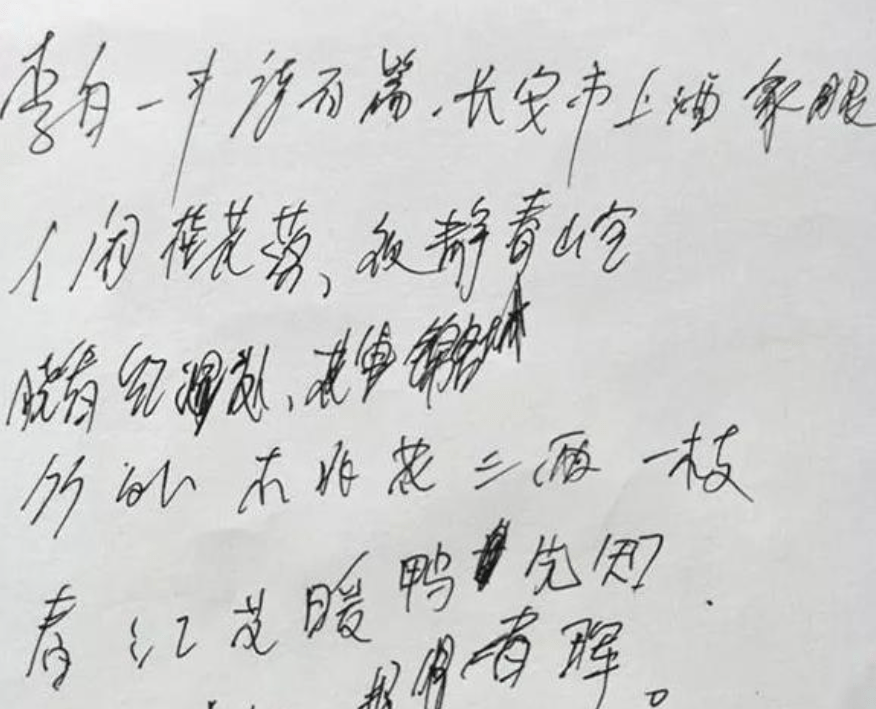 李白一斗诗百篇.长安市上酒家眠
人闲桂花落、夜静春山空
晓看红湿处、花重锦官城
竹外桃花三两枝
春江 暖鸭先知.
春晖。